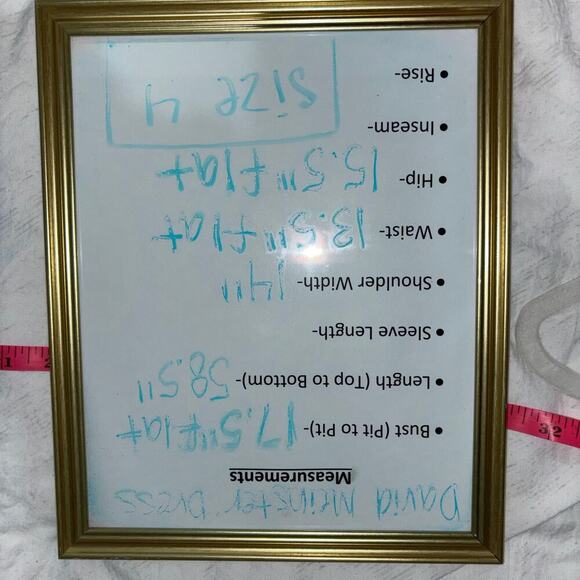 David Meinster Dress
Measurements
• Bust (Pit to Pit)- 17.5" flat
• Length (Top to Bottom)- 58.5"
• Sleeve Length-
• Shoulder Width- 14"
• Waist- 13.5" flat
• Hip- 15.5" flat
• Inseam-
• Rise-
Size 4
1 2
32